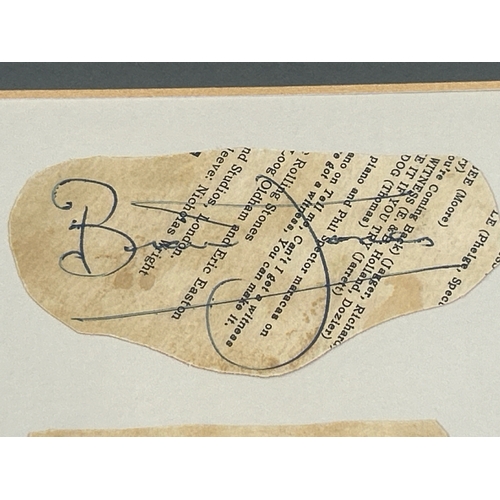 Brian Jones
E (Phelge, Spec
JEE (Moore)
're Coming Back) (Jagger, Richar
WITNESS (E &
Holland, Dozier)
E IT IF YOU TRY (Jarrett)
DOG (Thomas)
piano and Phil
ector maracas on
on Tell me, Can't I get a witness
e got a witness
You can make it
Rolling Stones
Loog Oldham and Eric Easton
nd Studios, London
leeve: Nicholas
right